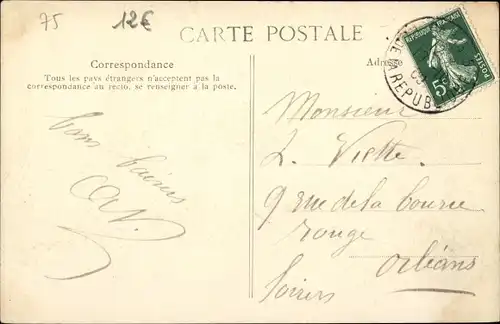 75
12€
CARTE POSTALE
Correspondance
Tous les pays étrangers n'acceptent pas la
correspondance au recto, se renseigner à la poste.
Adresse
REPUBLIQUE FRANÇAISE
POSTES
5c
REPUB
bons baisers
Monsieur
L. Viette
9 rue de la bourie
rouge
Orléans
Loiret